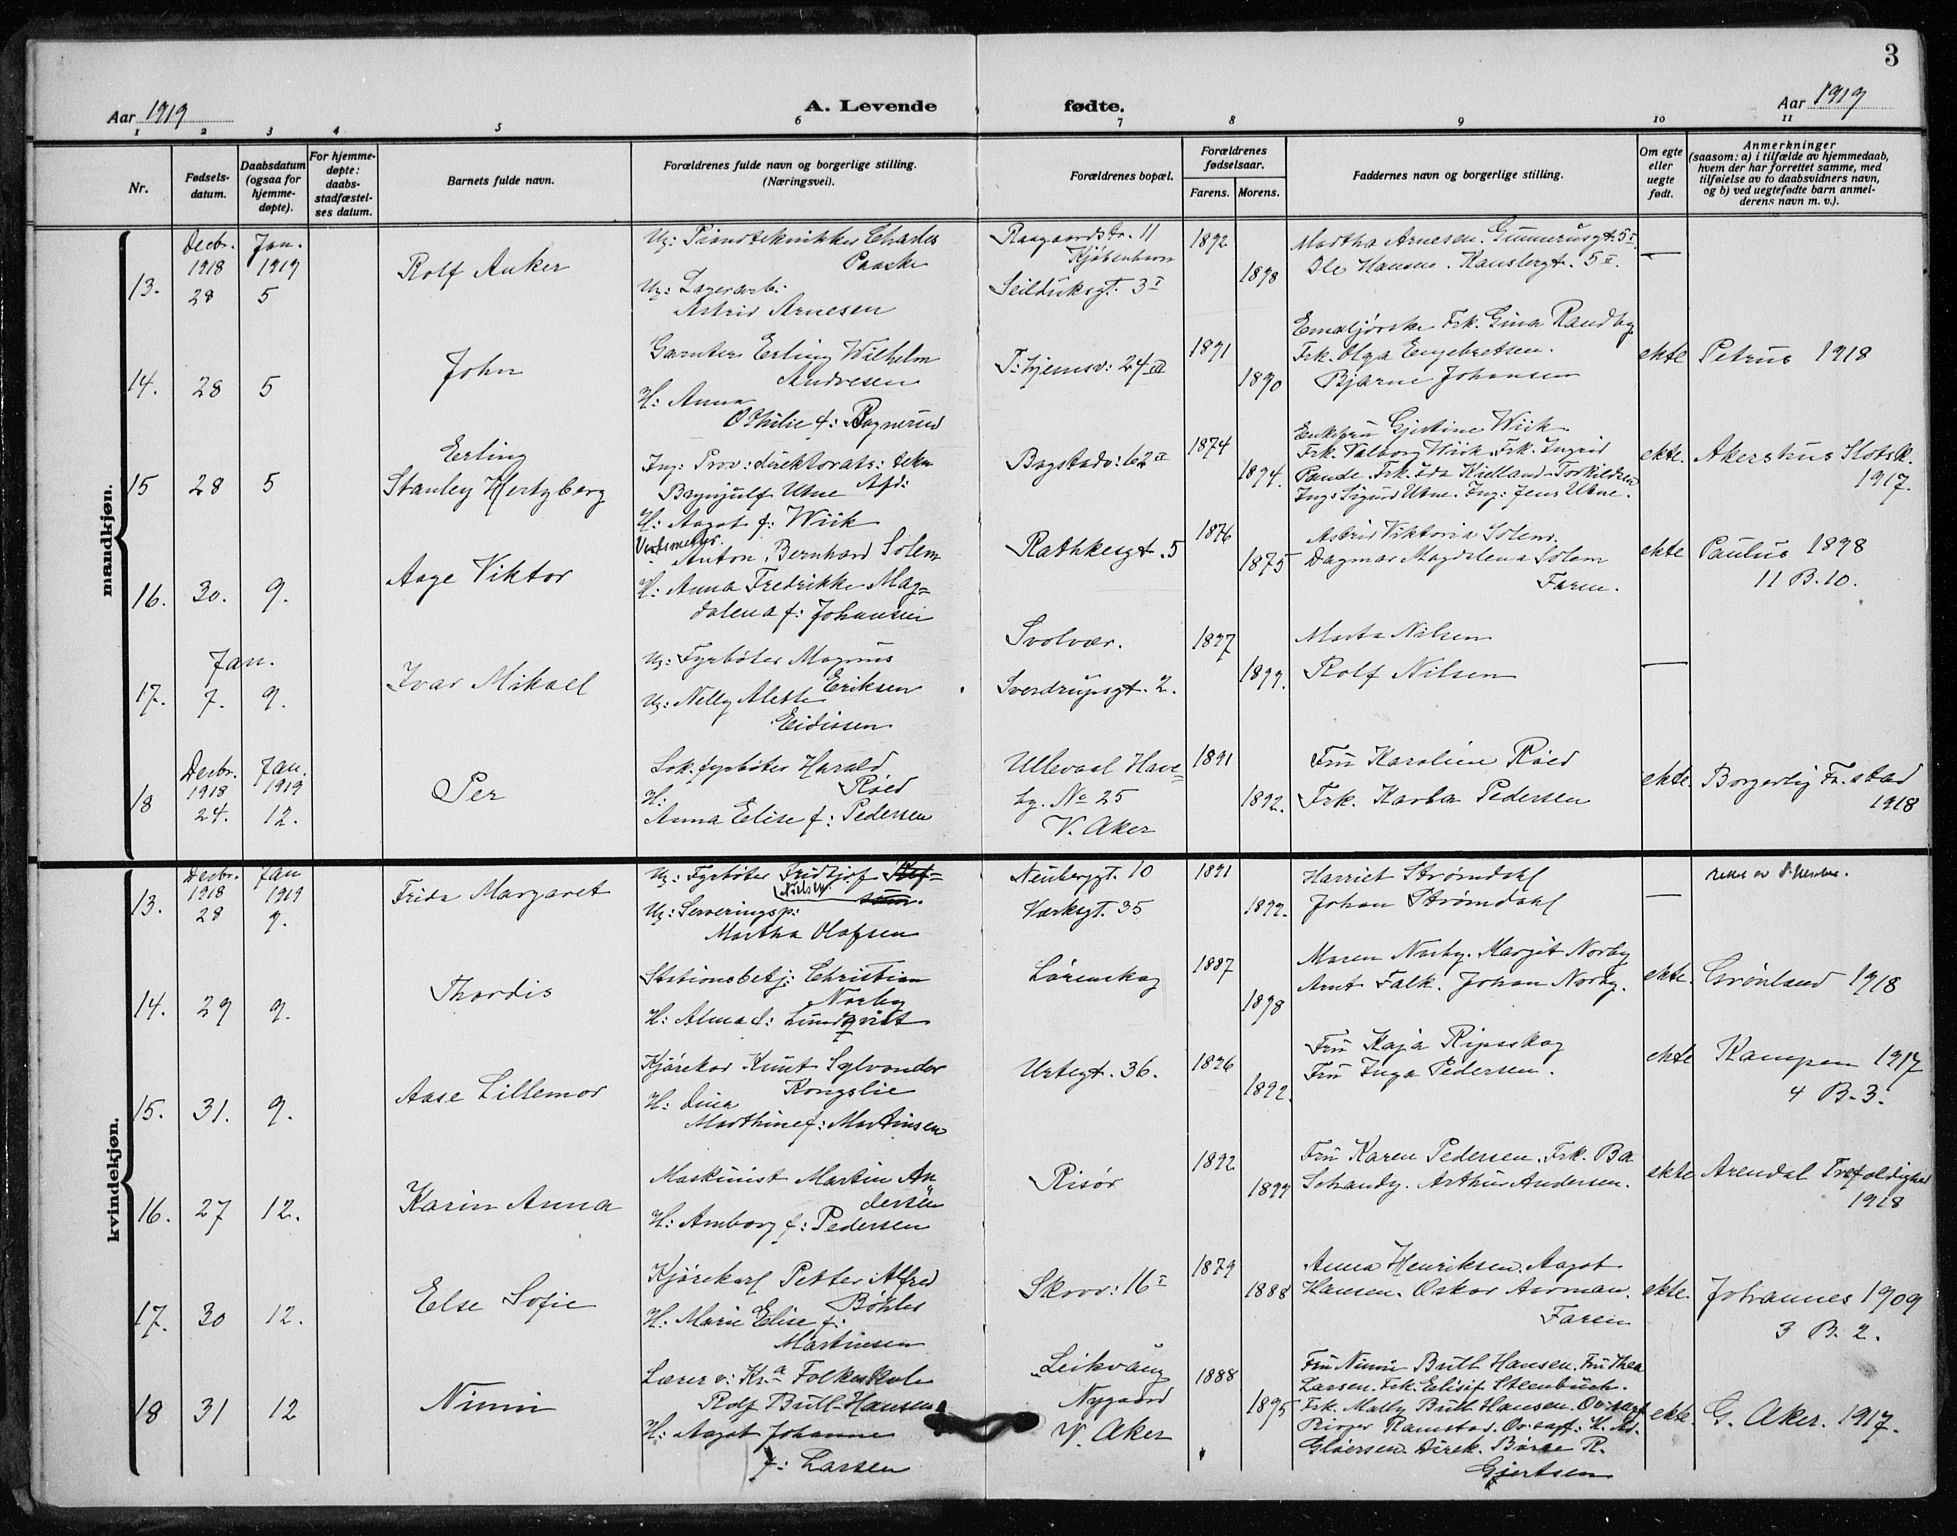 3
Aar 1919
A. Levende fødte.
Aar 1919
1 2 3 4 5 6 7 8 9 10 11
Nr.
Fødsels-
datum.
Daabsdatum
(ogsaa for
hjemme-
døpte).
For hjemme-
døpte:
daabs-
stadfæstel-
ses datum.
Barnets fulde navn.
Forældrenes fulde navn og borgerlige stilling.
(Næringsvei).
Forældrenes bopæl.
Forældrenes
fødselsaar.
Farens. Morens.
Faddernes navn og borgerlige stilling.
Om egte
eller
uegte
født.
Anmerkninger
(saasom: a) i tilfælde av hjemmedaab,
hvem der har forrettet samme, med
tilføielse av to daabsvidners navn,
og b) ved uegtefødte barn anmel-
derens navn m. v.).
mandkjøn.
13.
Decbr.
1918
28
Jan.
1919
5
Rolf Anker
Ug: Charles
Paaske
Ug: Lagerarb:
Astrid Arnesen
Raagaardstr. 11
Kjøbenhavn
Seilduksgt. 3 I
1892
1898
Martha Arnesen. Gunnerusgt. 5 I
Ole Hansen. 5 II.
—
14.
28
5
John
Gartner Erling Wilhelm
Andresen
H: Anna
Othilie f: Rognerud
T:hjemsv: 24 III
1891
1890
Frk. Gina Randby
Frk. Olga Engebretsen.
Bjarne Johansen
ekte
Petrus 1918
15
28
5
Erling
Stanley Hertzberg
Ing: Prov: direktorats: tekn
Afd:
Utne
H: Aagot f: Wiik
Bogstadv: 62 II
1874
1894.
Enkefru Gjertine Wiik
Frk. Valborg Wiik. Frk. Ingrid
Paude. Frk. Ida Kielland-Torkildsen
Ing: Sigurd Utne. Ing: Jens Utne.
ekte.
Akershus Slotsk.
1917.
16.
30.
9.
Aage Viktor
Anton Bernhard Solem
H: Anna Fredrikke Mag=
dalena f: Johansen
Rathkesgt. 5
1876
1875
Astrid Viktoria Solem.
Dagmar Magdalena Solem
Faren.
ekte
Paulus 1898
11 B. 10.
17.
Jan.
7.
9.
Ivar Mikael
Ug: Fyrbøter Magnus
Eriksen
Ug: Nelly Alette
Eidissen
Svolvær.
Sverdrupsgt. 2.
1897
1899.
Marta Nilsen
Rolf Nilsen
—
18
Decbr.
1918
24.
Jan.
1919
12.
Per
Lok. fyrbøter Harald
Røed
H:
Anna Elise f: Pedersen
Ullevaal Have=
by. No 25
V. Aker
1891
1892.
Fru Karoline Røed
Frk. Karla Pedersen
ekte.
Borgerlig Fr.stad
1918
kvindekjøn.
13.
Decbr.
1918
28
Jan
1919
9.
Frida Margaret
Ug: Fyrbøter Fridtjof
Nielsen
Ug: Serveringsp:
Martha Olafsen
Neuberggt. 10
Verksgt. 35
1891
1899.
Harriet Strømdahl
Johan Strømdahl
—
14.
29
9.
Thordis
Stationsbetj: Christian
Norby
H: Alma f: Lundqvist
Lørenskog
1887
1898
Maren Norby. Margit Norby
Arnt Falk. Johan Norby.
ekte.
Grønland 1918
15.
31.
9.
Aase Lillemor
Kjørekar Knut Sylvander
Kongslie
H: Dina
Marthine f: Martinsen
Urtegt. 36.
1896
1892.
Fru Kaja Ripsskog
Fru Inga Pedersen.
ekte
Kampen 1917
4 B. 3.
16.
27
12.
Karin Anna
Maskinist Martin An
dersen
H: Amborg f: Pedersen
Risør
1892
1899
Fru Karen Pedersen. Frk. Ba
Schandy. Arthur Andersen.
ekte
Arendal Trefoldighed
1918
17.
30
12.
Else Sofie
Kjørekarl Petter Alfred
Bøhler
H: Marie Elise f:
Martinsen
Skovv: 16 I
1879
1888
Anna Henriksen. Aagot
Hansen. Oskar Aarman.
Faren
ekte.
Johannes 1909
3 B. 2.
18
31
12
Ninni
Lærer v: Kr.a Folkeskole
Rolf Bull Hansen
H: Aagot Johanne
f: Larsen
Leikvang
Nygaard
V. Aker
1888
1895
Fru Ninni Bull Hansen. Fru Thea
Larsen. Frk. Elisif Steenbuch.
Frk. Mally Bull Hansen.
Birger Ramstad.
Gløersen. Direk. Børge R.
Gjertsen
ekte.
G. Aker. 1917.